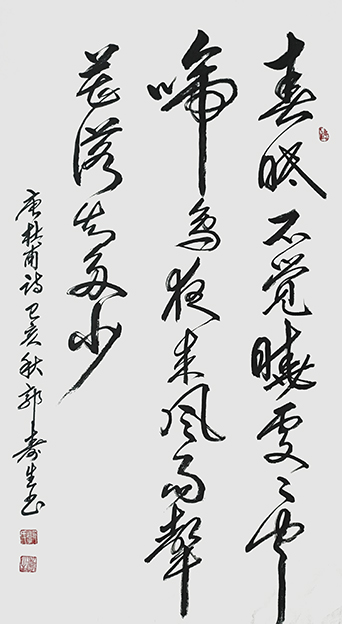 春眠不觉晓处々闻
啼鸟夜来风雨声
花落知多少
唐杜甫诗己亥秋郭寿生书